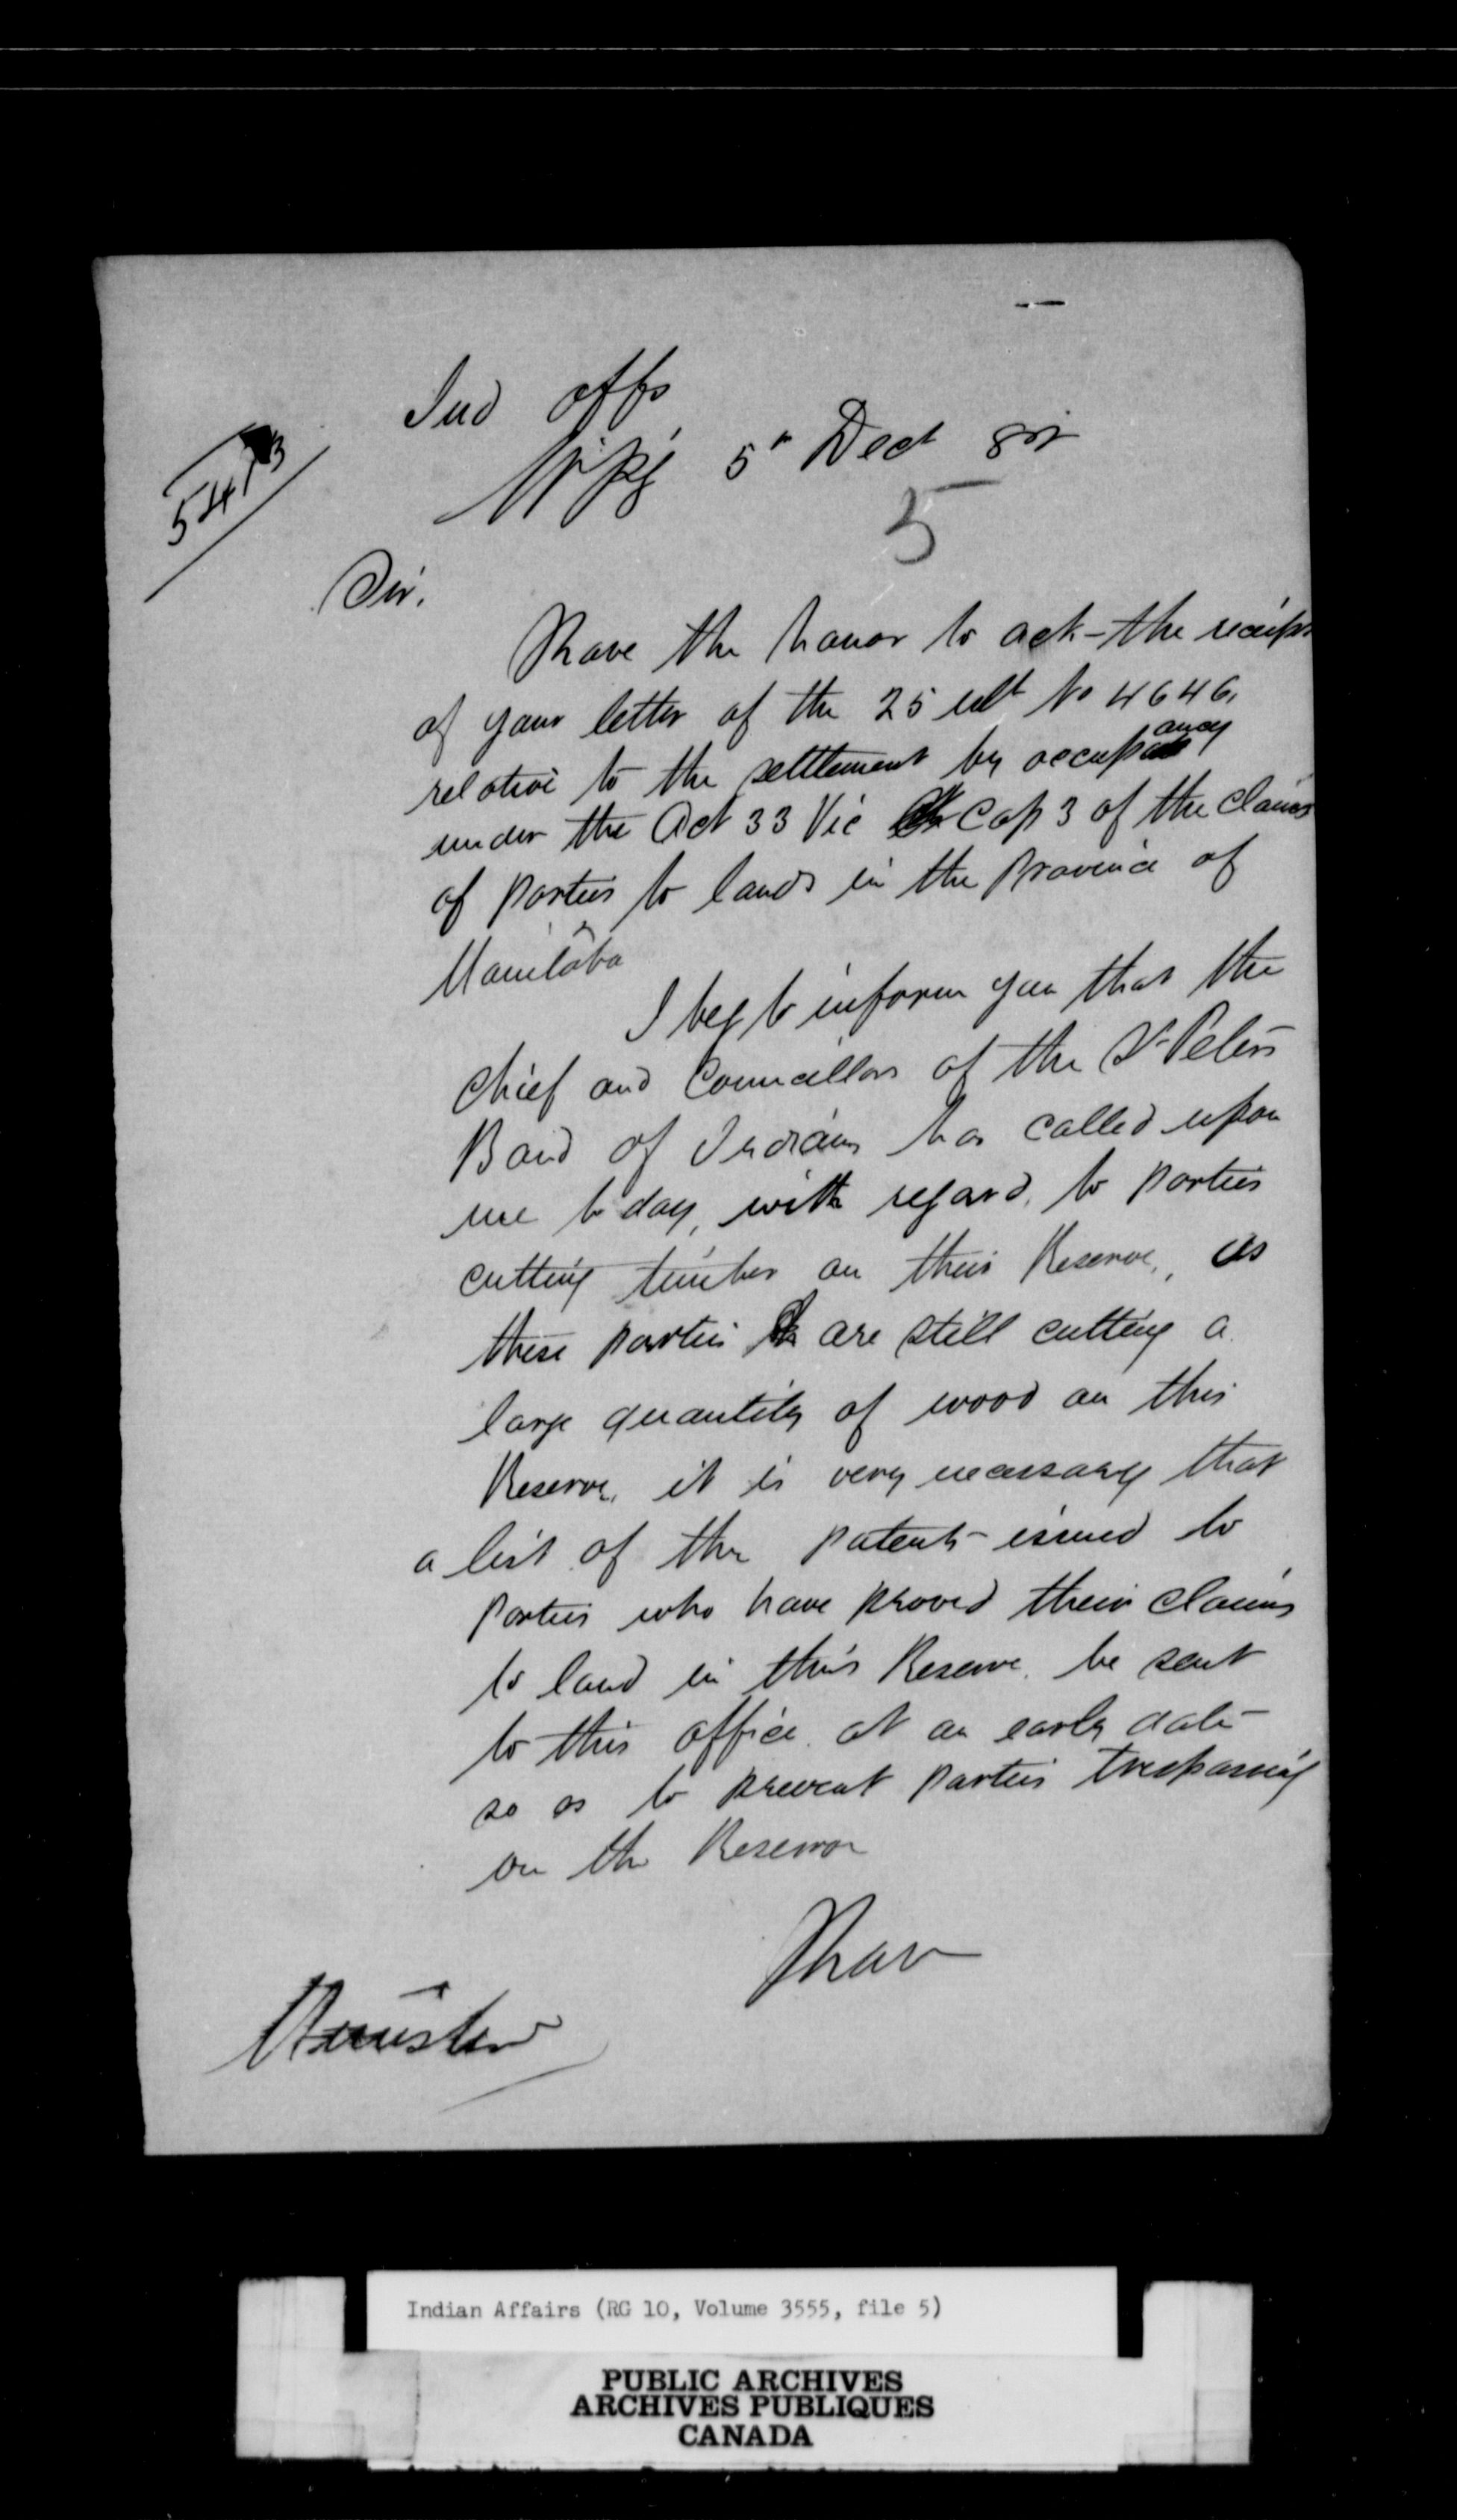 Ind Offs
Wpg 5th Dect
5
Sir.
I have the honor to ack-the receipt
of your letter of the 25 ult No 4646,
relative to the settlement by occupancy
under the Act 33 Vic Cap 3 of the claims
of parties to lands in the Province of
Manitoba
I beg to inform you that the
Chief and Councillors of the St Peters
Band of Indians has called upon
me to day, with regard, to parties
cutting timber on their Reserve, as
these parties are still cutting a
large quantity of wood on this
Reserve, it is very necessary that
a list of the patents issued to
parties who have proved their claims
to land in this Reserve be sent
to this office at an early date
so as to prevent parties trespassing
on the Reserve
I have
Indian Affairs (RG 10, Volume 3555, file 5)
PUBLIC ARCHIVES
ARCHIVES PUBLIQUES
CANADA